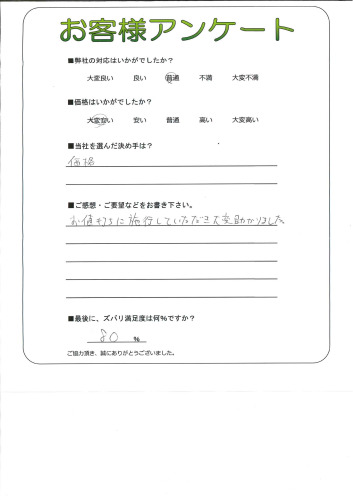 お客様アンケート
■弊社の対応はいかがでしたか？
大変良い 良い 普通 不満 大変不満
■価格はいかがでしたか？
大変安い 安い 普通 高い 大変高い
■当社を選んだ決め手は？
価格
■ご感想・ご要望などをお書き下さい。
お値打ちに施行していただき大変助かりました。
■最後に、ズバリ満足度は何%ですか？
80 %
ご協力頂き、誠にありがとうございました。